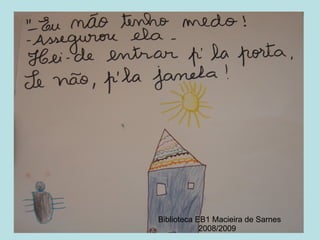 "-Eu não tenho medo!
-Assegurou ela-
Hei-de entrar p'la porta,
Se não, p'la janela!
Biblioteca EB1 Macieira de Sarnes
2008/2009